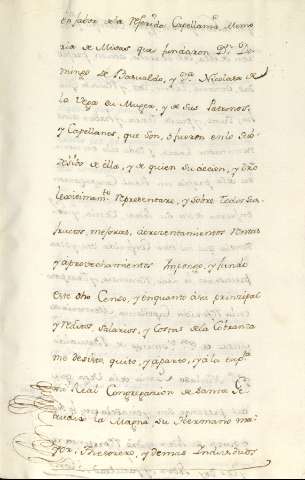 en favor de la referida Capellanía, Memo
ria de Misas que fundaron Dn. Do
mingo de Barualdo, y Da. Nicolasa de
la Vega su Muger, y de sus Patronos,
y Capellanes, que son, ó fueren en lo
de ella, y de quien su accion, y dro
lexitimamte. representare, y sobre todos sus
frutos mejoras, acrecentamientos Rentas
y aprovechamientos Impongo, y fundo
este dho Censo, y en quanto á su principal
y reditos, salarios, y costas de la Cobranza
me desisto, quito, y aparto, y á la
Real Congregacion de Santa Ge
trudis la Magna su Hermano ma
yor, Thesorero, y demas Individuos